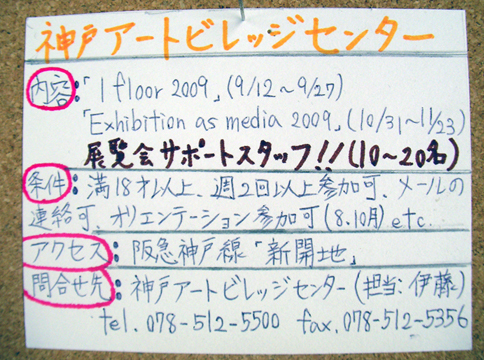 神戸アートビレッジセンター
内容:「1 floor 2009」(9/12〜9/27)
「Exhibition as media 2009」(10/31〜11/23)
展覧会サポートスタッフ!!(10〜20名)
条件:満18才以上、週2回以上参加可、メールの
連絡可、オリエンテーション参加可(8.10月)etc.
アクセス:阪急神戸線「新開地」
問合せ先:神戸アートビレッジセンター(担当:伊藤)
tel.078-512-5500 fax.078-512-5356